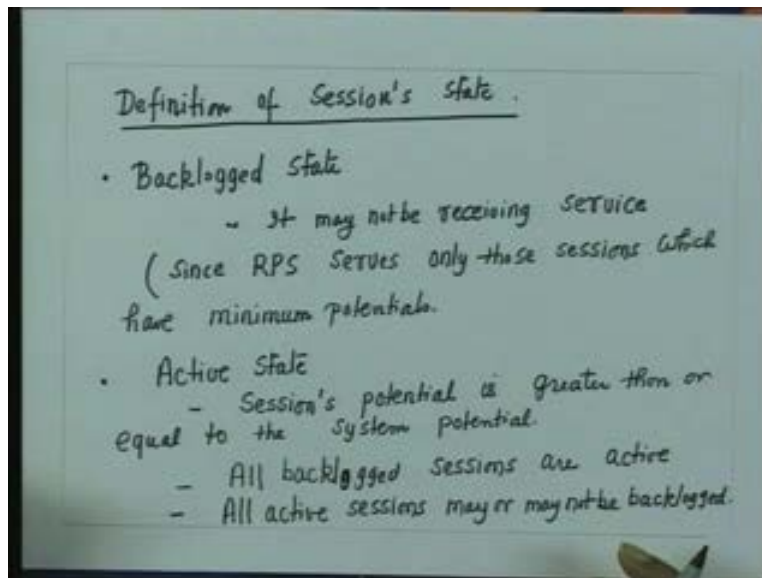 Definition of Session's State.
• Backlogged State
- It may not be receiving service
(Since RPS serves only those sessions which
have minimum potentials.
• Active State
- Session's potential is greater than or
equal to the system potential.
- All backlogged sessions are active
- All active sessions may or may not be backlogged.